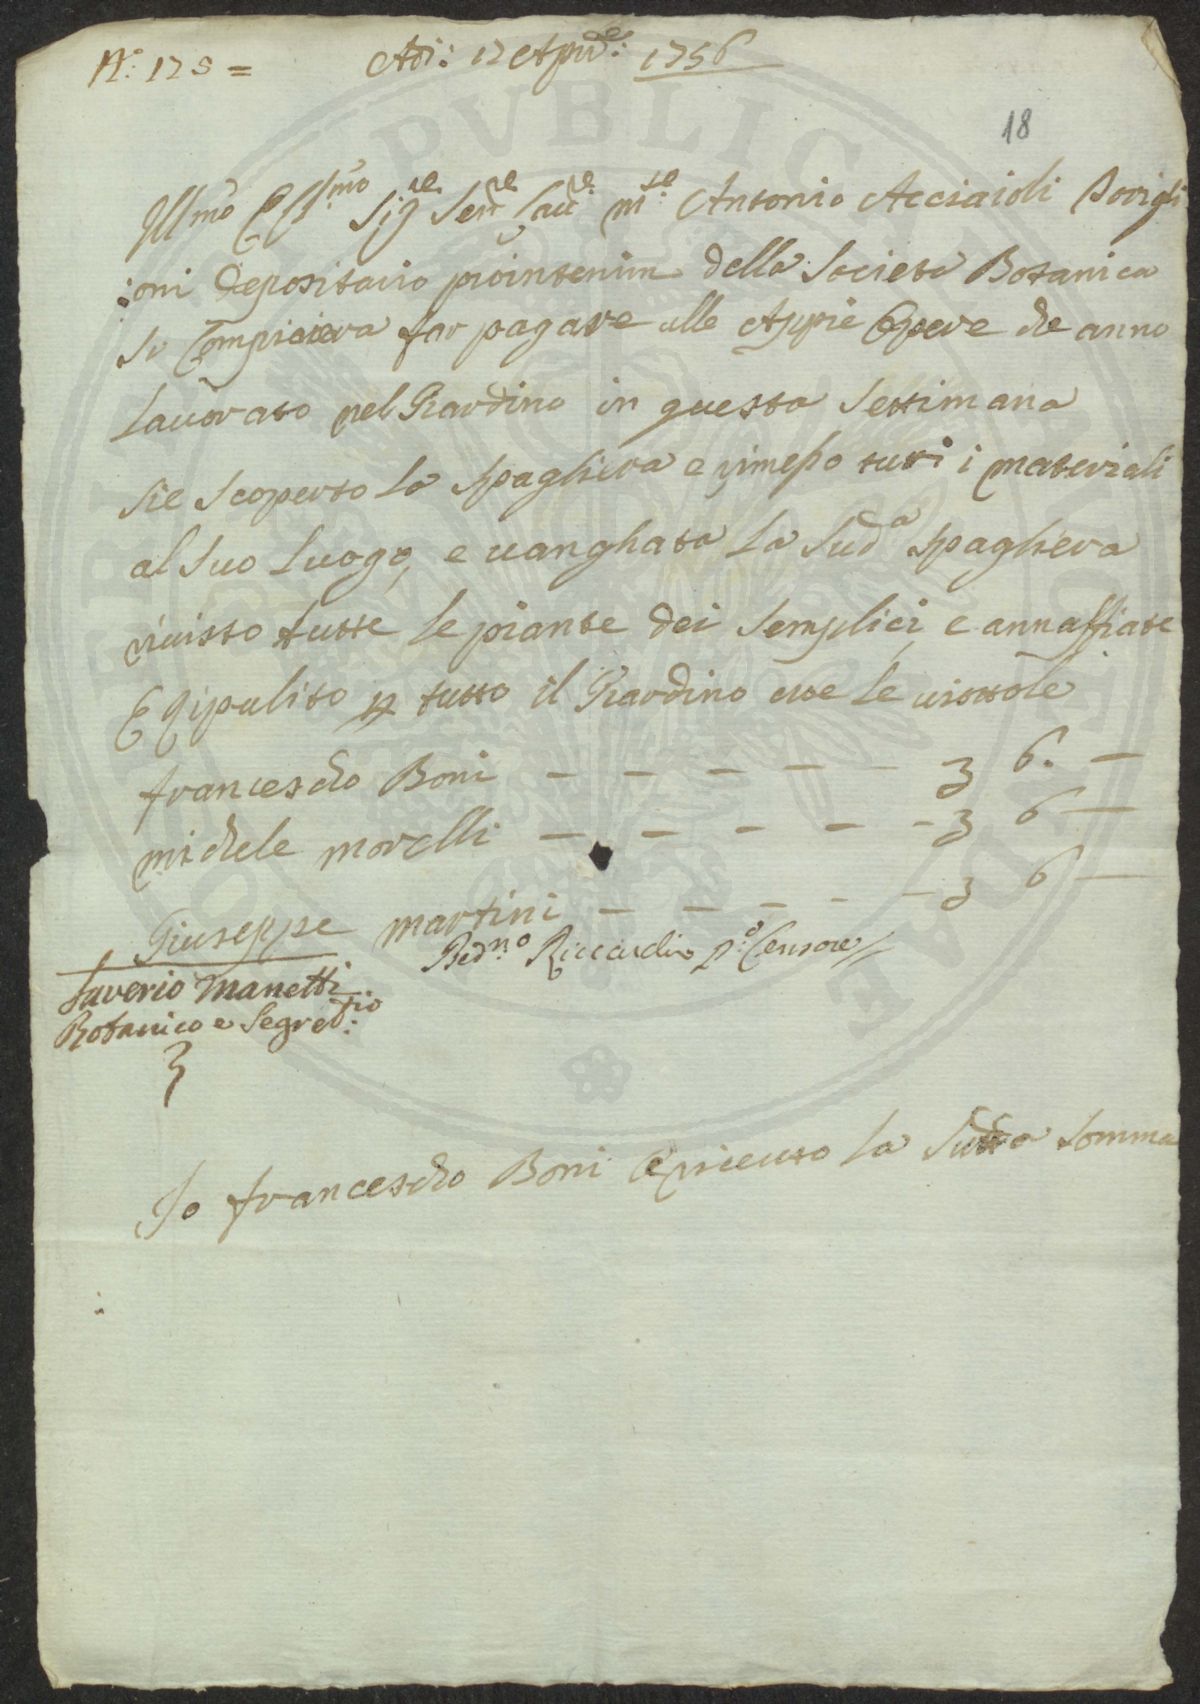 N.° 175 =
Adi: 17 Aprile: 1756
18
Illmo e Clmo Sigre Senre Cavre m:se Antonio Acciaioli Torrigi
:oni Depositario prointerim della Societa Botanica
Si Compiacera far pagare alle Appie Opere che anno
Lauorato nel Giardino in questa Settimana
Si e Scoperto La Spagliera e rimesso tuti i materiali
al Suo Luogo, e uanghata La Suda Spagliera
riuisto tutte le piante dei Semplici, e annaffiate
E Ripulito p tutto il Giardino e le uiottole
francescho Boni — — — — — 3 6. —
michele morelli — — — — — 3 6 —
Giuseppe martini — — — — — 3 6 —
Bed.no Riccardi p.o Censore
Saverio Manetti
Botanico e Segretrio:
3
Io francescho Boni o riceuto la Sudda Somma